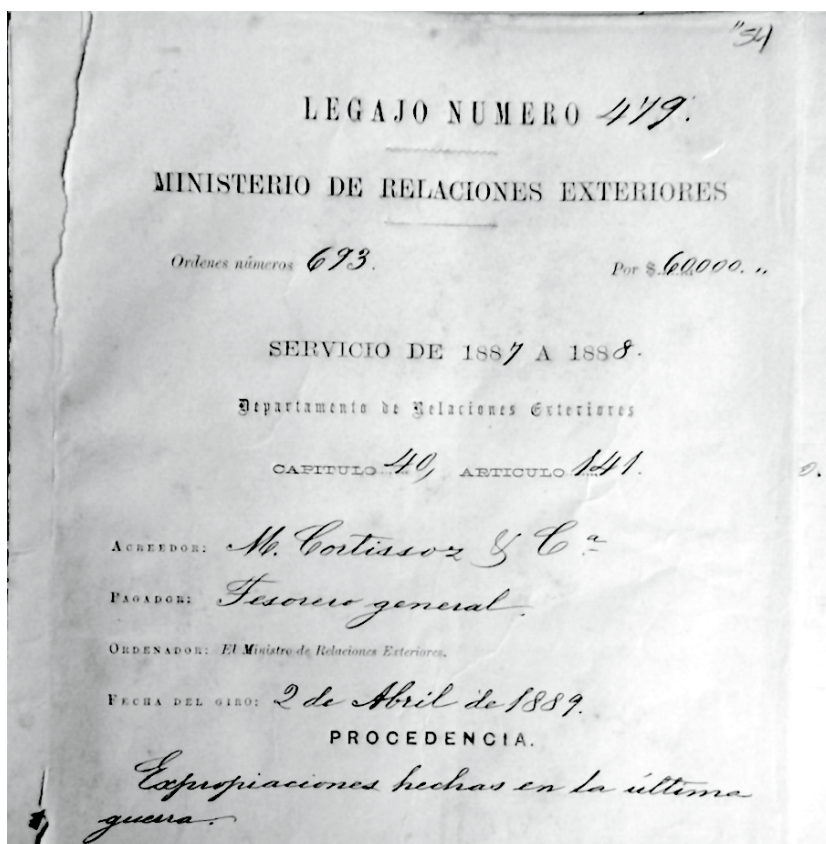 "54
LEGAJO NUMERO 479.
MINISTERIO DE RELACIONES EXTERIORES
Ordenes números 693. Por $ 60,000. "
SERVICIO DE 1887 A 1888.
Departamento de Relaciones Exteriores
CAPITULO 40, ARTICULO 141.
ACREEDOR: M. Cortissoz & Cª
PAGADOR: Tesorero general.
ORDENADOR: El Ministro de Relaciones Exteriores.
FECHA DEL GIRO: 2 de Abril de 1889.
PROCEDENCIA.
Expropiaciones hechas en la última
guerra.